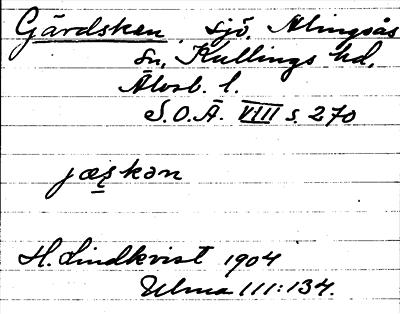 Gärdsken, sjö, Alingsås
sn, Kullings hd,
Älvsb. l.
S.O.Ä. VIII s. 270
jæskən
H. Lindkvist 1904
Ulma 111:134.